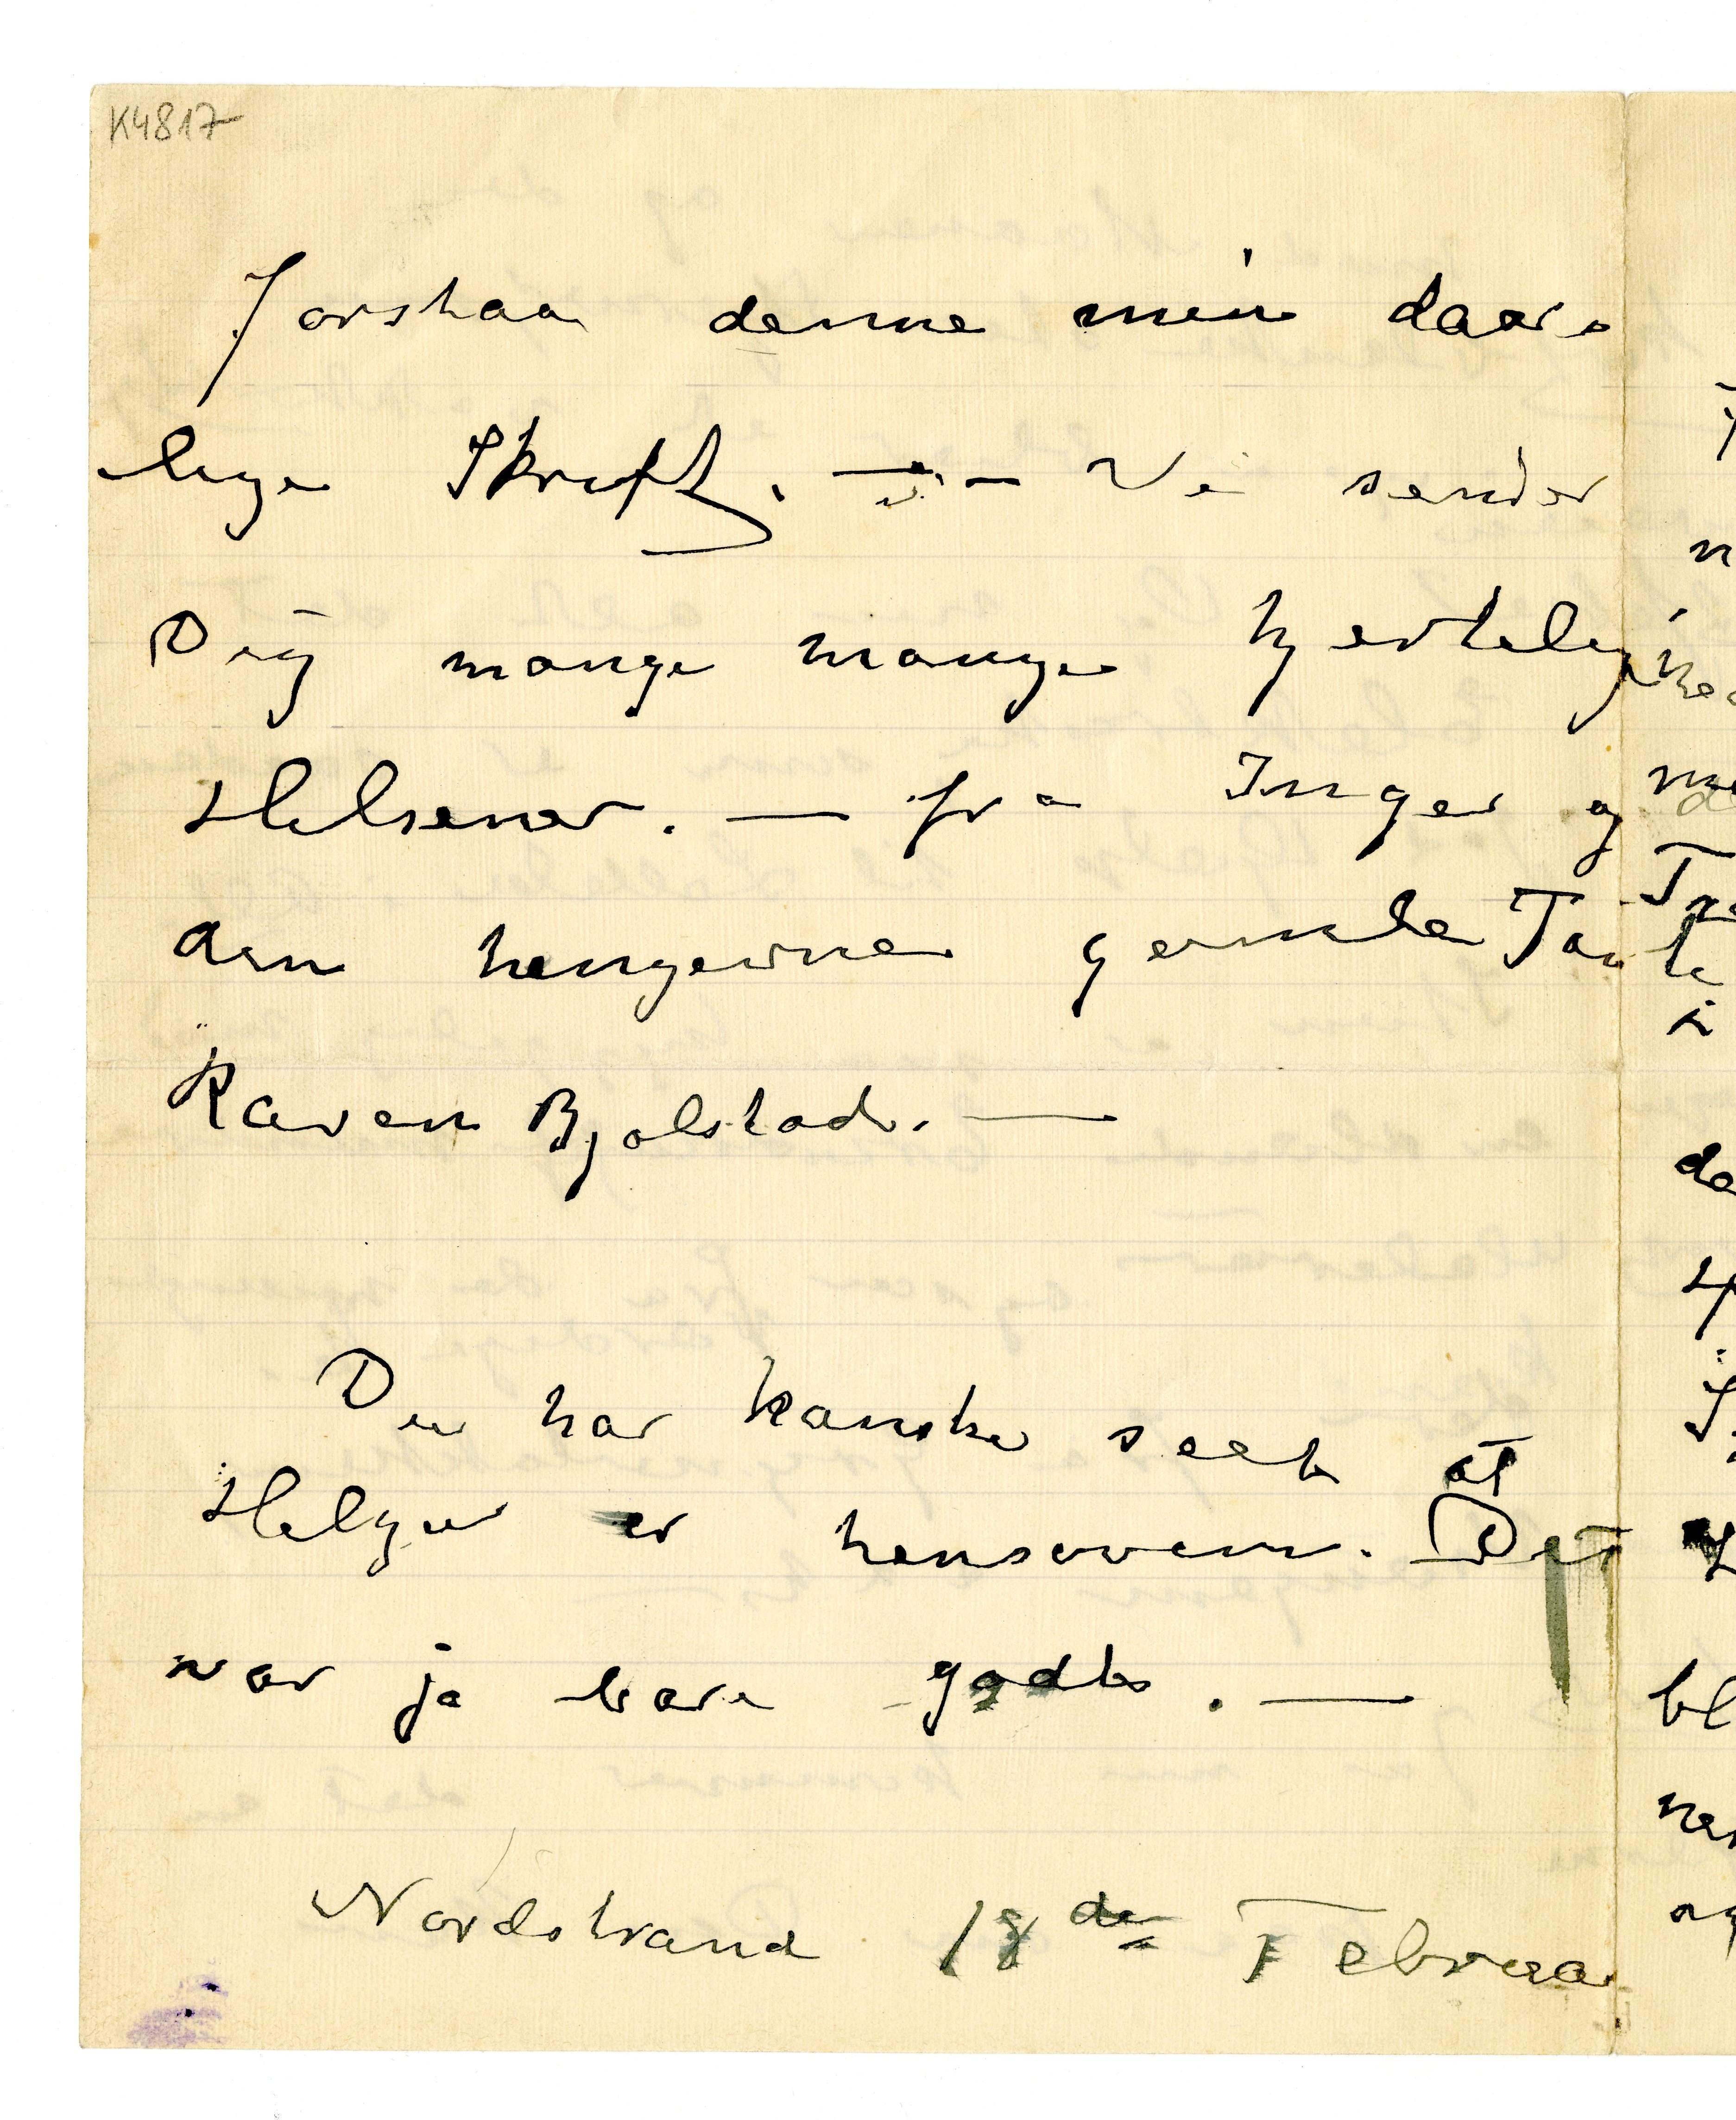 K4817
Forstaa denne min daar=
lige Skrift. — Vi sender
Dig mange mange hjertelige
Hilsener. — fra Inger og
din hengivne gamle Tante
Karen Bjølstad. —
Du har kanske seet at
Helgur er hensoven. Det
var ja bare godt. —
Nordstrand 18de Februa